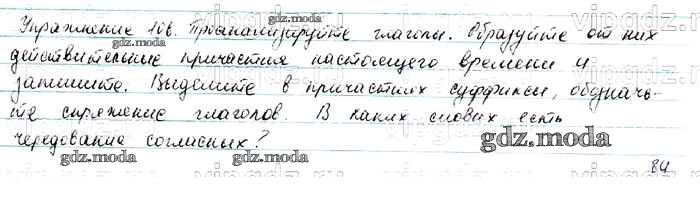 Упражнение 106. Проанализируйте глаголы. Образуйте от них
действительные причастия настоящего времени и
запишите. Выделите в причастиях суффиксы, обозначь-
те спряжение глаголов. В каких словах есть
чередование согласных?
gdz.moda
gdz.moda
gdz.moda
84